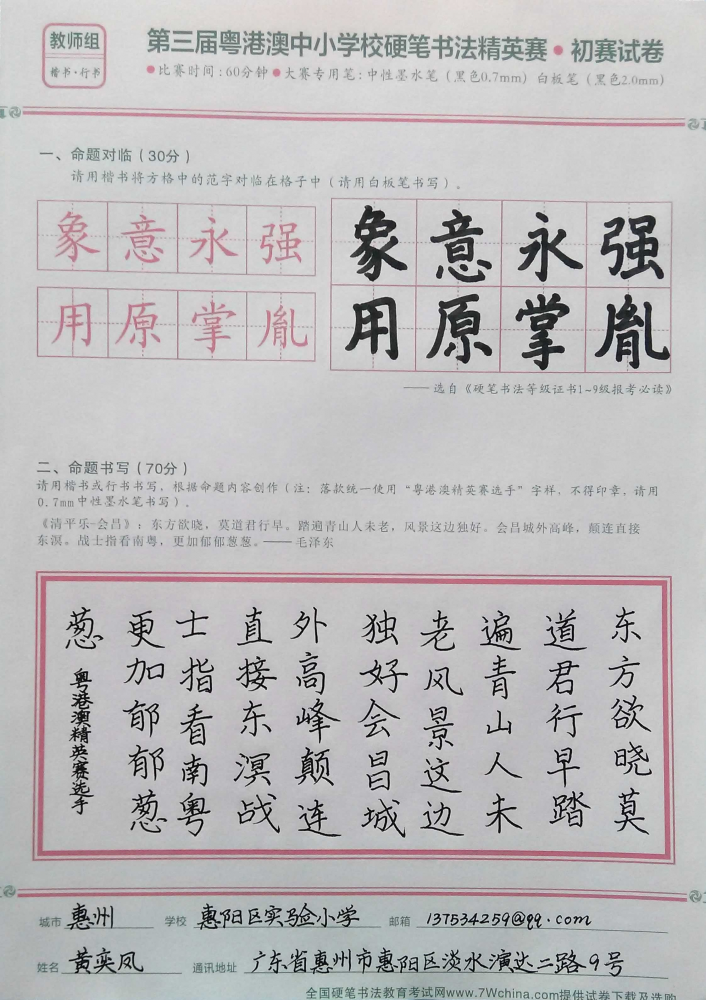 教师组
楷书·行书
第三届粤港澳中小学校硬笔书法精英赛·初赛试卷
●比赛时间:60分钟●大赛专用笔:中性墨水笔(黑色0.7mm)白板笔(黑色2.0mm)
一、命题对临(30分)
请用楷书将方格中的范字对临在格子中(请用白板笔书写)。
象意永强
用原掌胤
象意永强
用原掌胤
——选自《硬笔书法等级证书1~9级报考必读》
二、命题书写(70分)
请用楷书或行书书写,根据命题内容创作(注:落款统一使用“粤港澳精英赛选手”字样,不得印章,请用
0.7mm中性墨水笔书写)。
《清平乐·会昌》:东方欲晓,莫道君行早。踏遍青山人未老,风景这边独好。会昌城外高峰,颠连直接
东溟。战士指看南粤,更加郁郁葱葱。——毛泽东
东方欲晓莫
道君行早踏
遍青山人未
老风景这边
独好会昌城
外高峰颠连
直接东溟战
士指看南粤
更加郁郁葱
葱
粤港澳精英赛选手
城市 惠州 学校 惠阳区实验小学 邮箱 137534259@qq.com
姓名 黄奕凤 通讯地址 广东省惠州市惠阳区淡水演达二路9号
全国硬笔书法教育考试网www.7Wchina.com提供试卷下载及选购